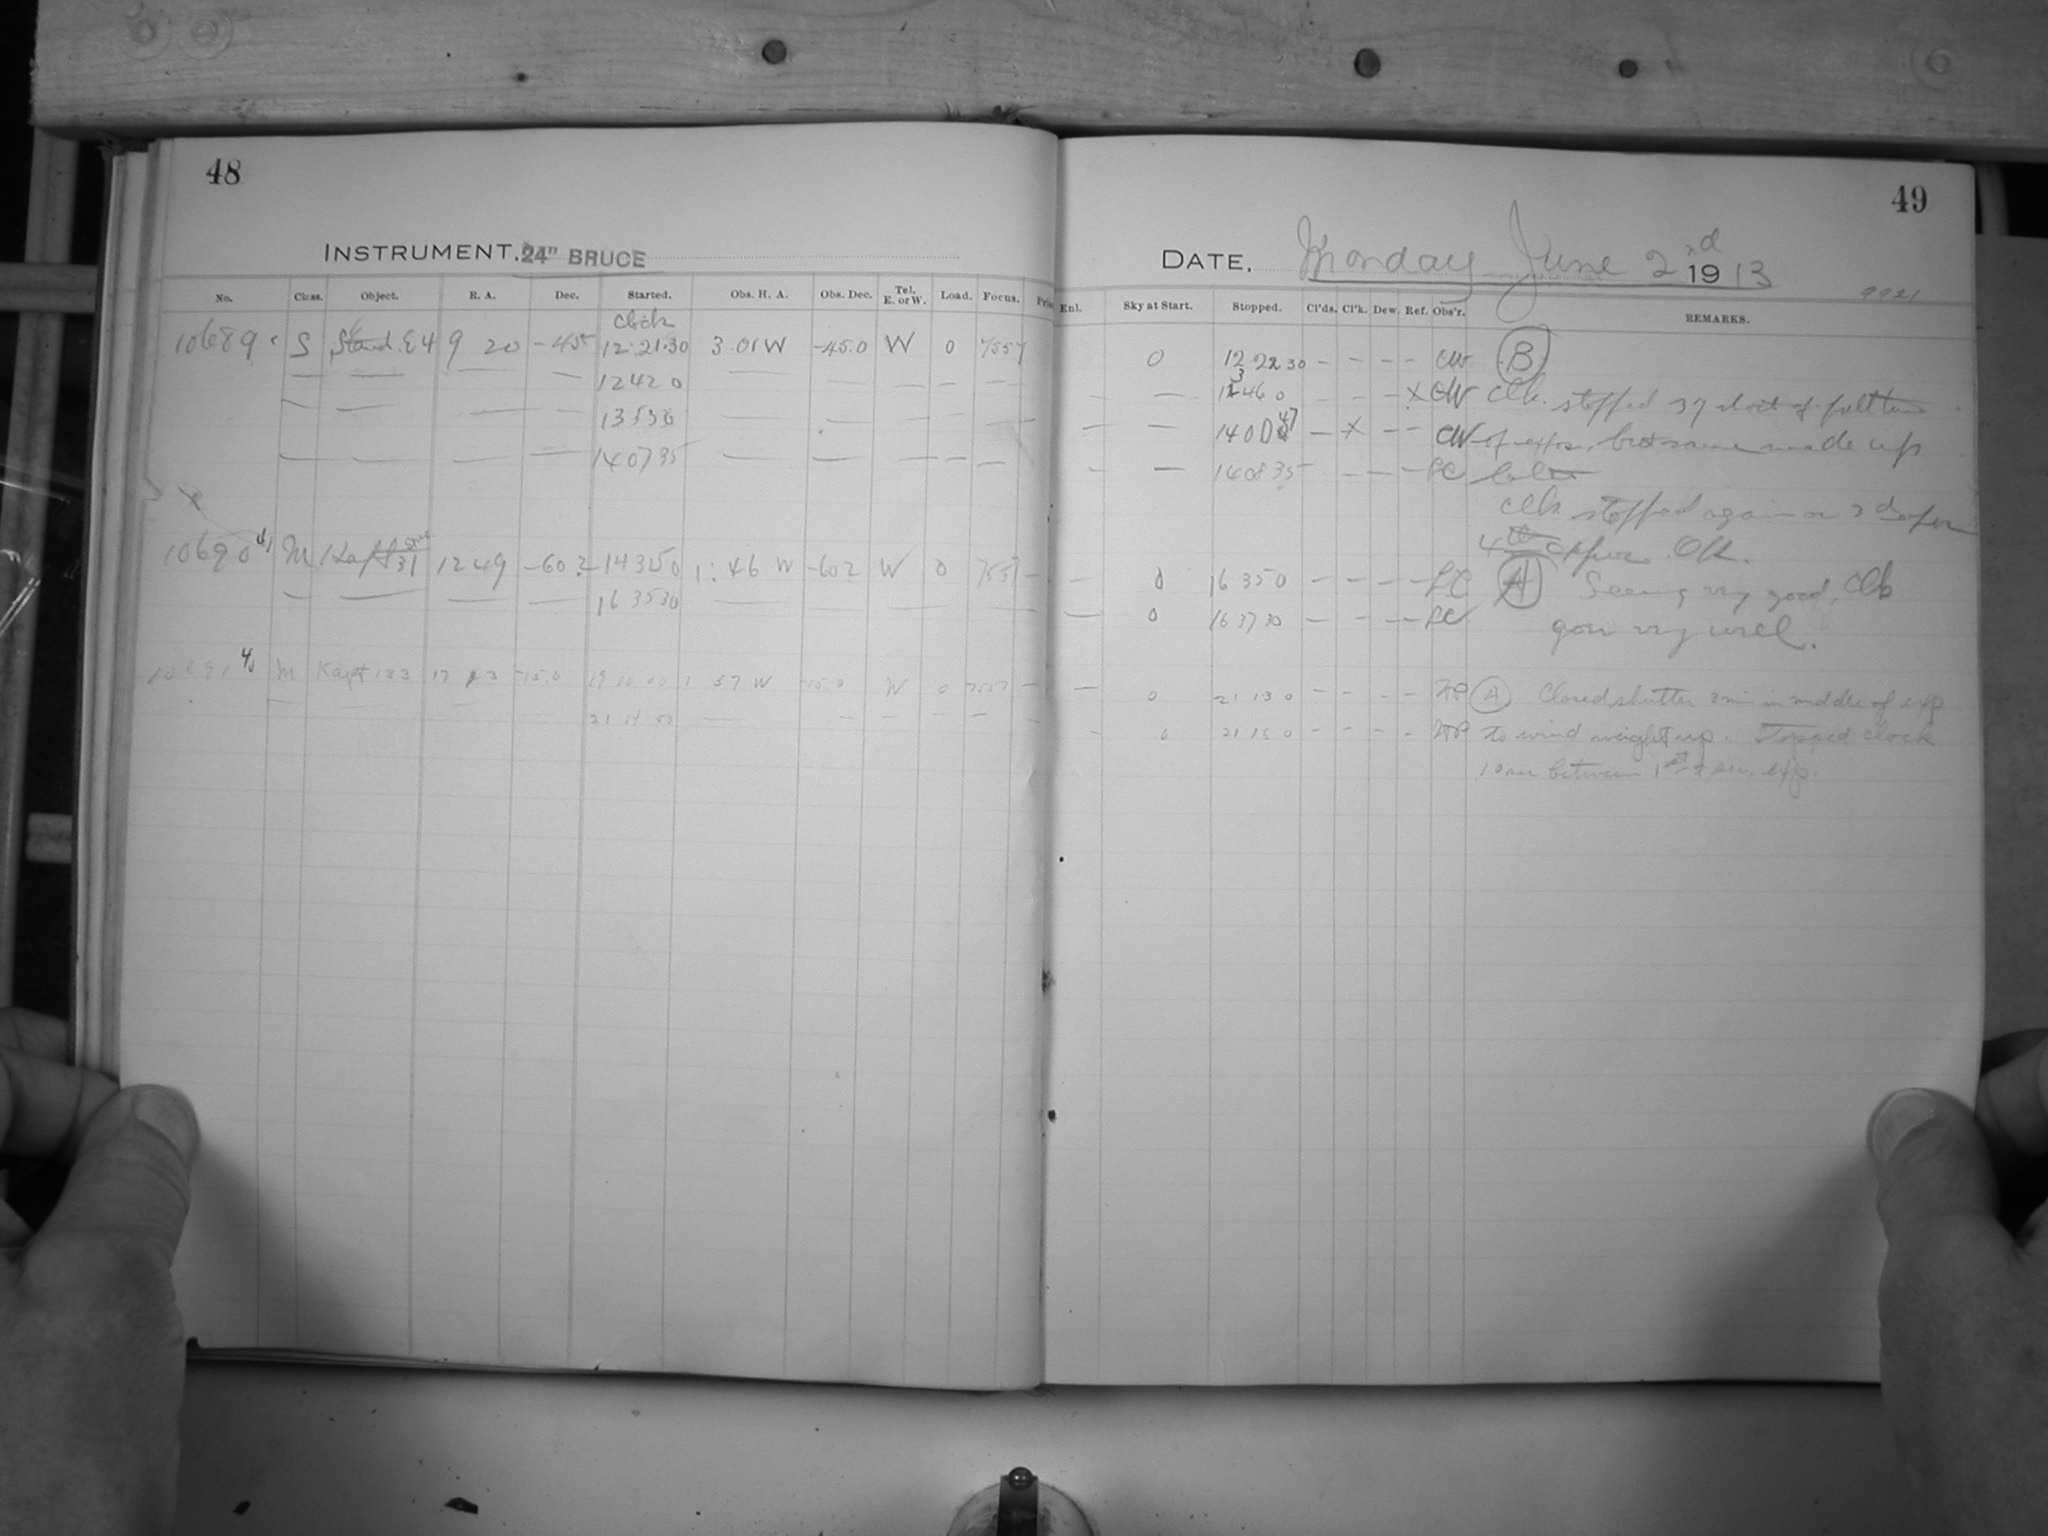 48
INSTRUMENT. 24" BRUCE
No. Class. Object. R. A. Dec. Started. Obs. H. A. Obs. Dec. Tel. E. or W. Load. Focus.
Clock
10689 S Stand. E4 9 20 -45 12.21.30 3.01 W -45.0 W 0 7557
— — — — 12 42 0 — — — — —
— — — — 13 53 0 — — — —
— — — — 14 07 35 — — — — —
10690 M Kapt 31 12 49 -60.2 14 32 50 1:46 W -60.2 W 0 7557 —
— — — — 16 35 30 — — —
10691 M Kapt 133 17 -15.0 19 10 00 1 57 W -15.0 W 0 7557 —
— — — — 21 14 00 — — — — — —
49
DATE, Monday June 2nd 1913
9921
Enl. Sky at Start. Stopped. Cl'ds. Cl'k. Dew. Ref. Obs'r. REMARKS.
0 12 22 30 — — — — CW (B)
— — 13 46 0 — — — X CW Clk. stopped 37 short of full time
— — 14 0 47 — X — — CW of expos. but same made up
— — 14 08 35 — — — — LC later
Clk stopped again on 3d exposure
4th expos. OK.
— 0 16 35 0 — — — — LC (A) Seeing very good, Clk
— 0 16 37 30 — — — — LC going very well.
— 0 21 13 0 — — — — (A) Closed shutter 3 min in middle of exp
— 0 21 16 0 — — — — to wind weight up. Stopped clock
10 sec between 1st & sec. exp.